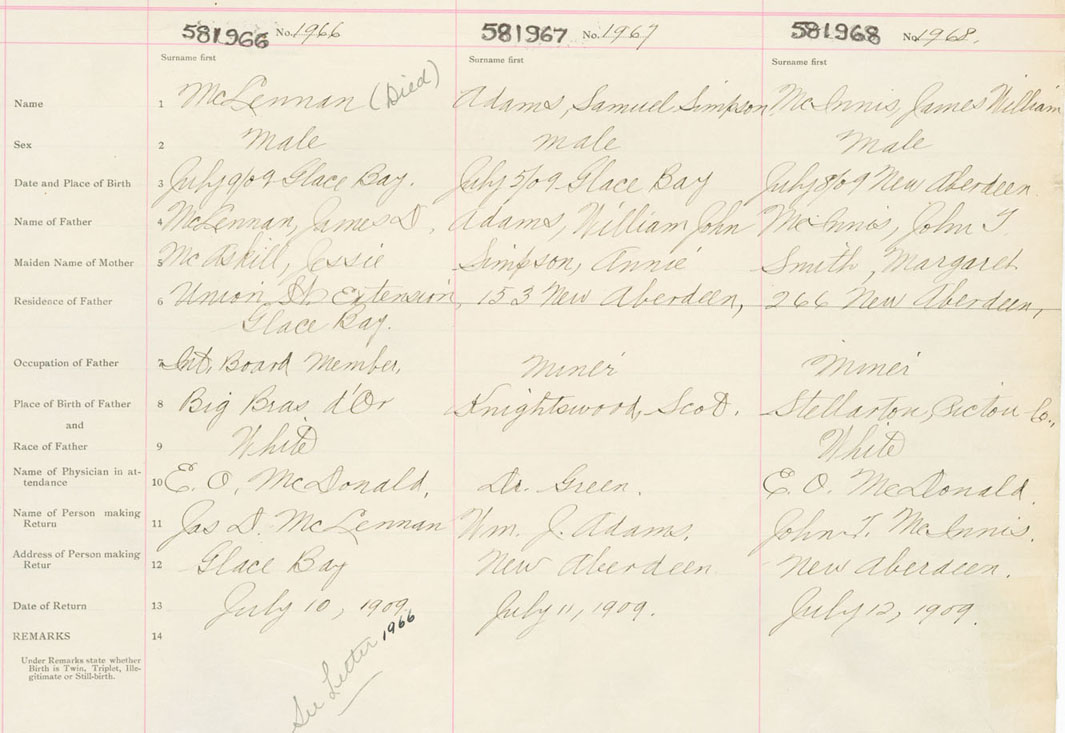 581966 No. 1966 581967 No. 1967 581968 No. 1968.
Surname first Surname first Surname first
Name 1 McLennan (Died) Adams, Samuel Simpson McInnis, James William
Sex 2 Male male Male
Date and Place of Birth 3 July 9/09 Glace Bay. July 5/09 Glace Bay July 8/09 New Aberdeen
Name of Father 4 McLennan, James D. Adams, William John McInnis, John T.
Maiden Name of Mother 5 McAskill, Jessie Simpson, Annie Smith, Margaret
Residence of Father 6 Union St. Extension, 153 New Aberdeen, 266 New Aberdeen,
Glace Bay.
Occupation of Father 7 Int. Board Member, Miner Miner
Place of Birth of Father 8 Big Bras d'Or Knightswood, Scot. Stellarton, Pictou Co.,
and
Race of Father 9 White White
Name of Physician in at-
tendance 10 E. O. McDonald, Dr. Green. E. O. McDonald.
Name of Person making
Return 11 Jas D. McLennan Wm. J. Adams. John T. McInnis.
Address of Person making
Retur 12 Glace Bay New Aberdeen New Aberdeen.
Date of Return 13 July 10, 1909 July 11, 1909. July 12, 1909.
REMARKS 14
Under Remarks state whether
Birth is Twin, Triplet, Ille-
gitimate or Still-birth.
See Letter 1966